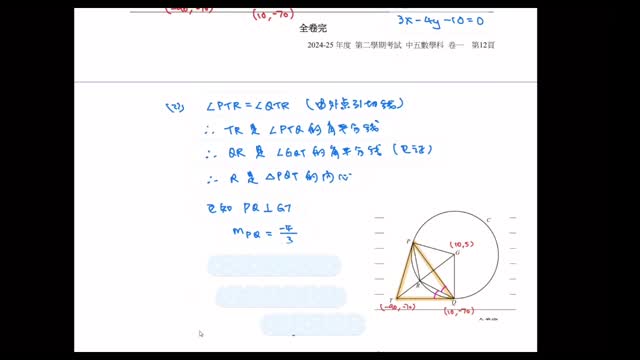 (10,-70)
3x-4y-10=0
全卷完
2024-25 年度 第二學期考試 中五數學科 卷一 第12頁
∠PTR=∠QTR (由外点引切线)
∴ TR 是 ∠PTQ 的角平分线
∴ QR 是 ∠GQT 的角平分线 (已证)
∴ R 是 △PQT 的内心
已知 PQ⊥GT
mPQ = -4/3
C
P
(10,5)
G
R
T
Q
(10,-70)